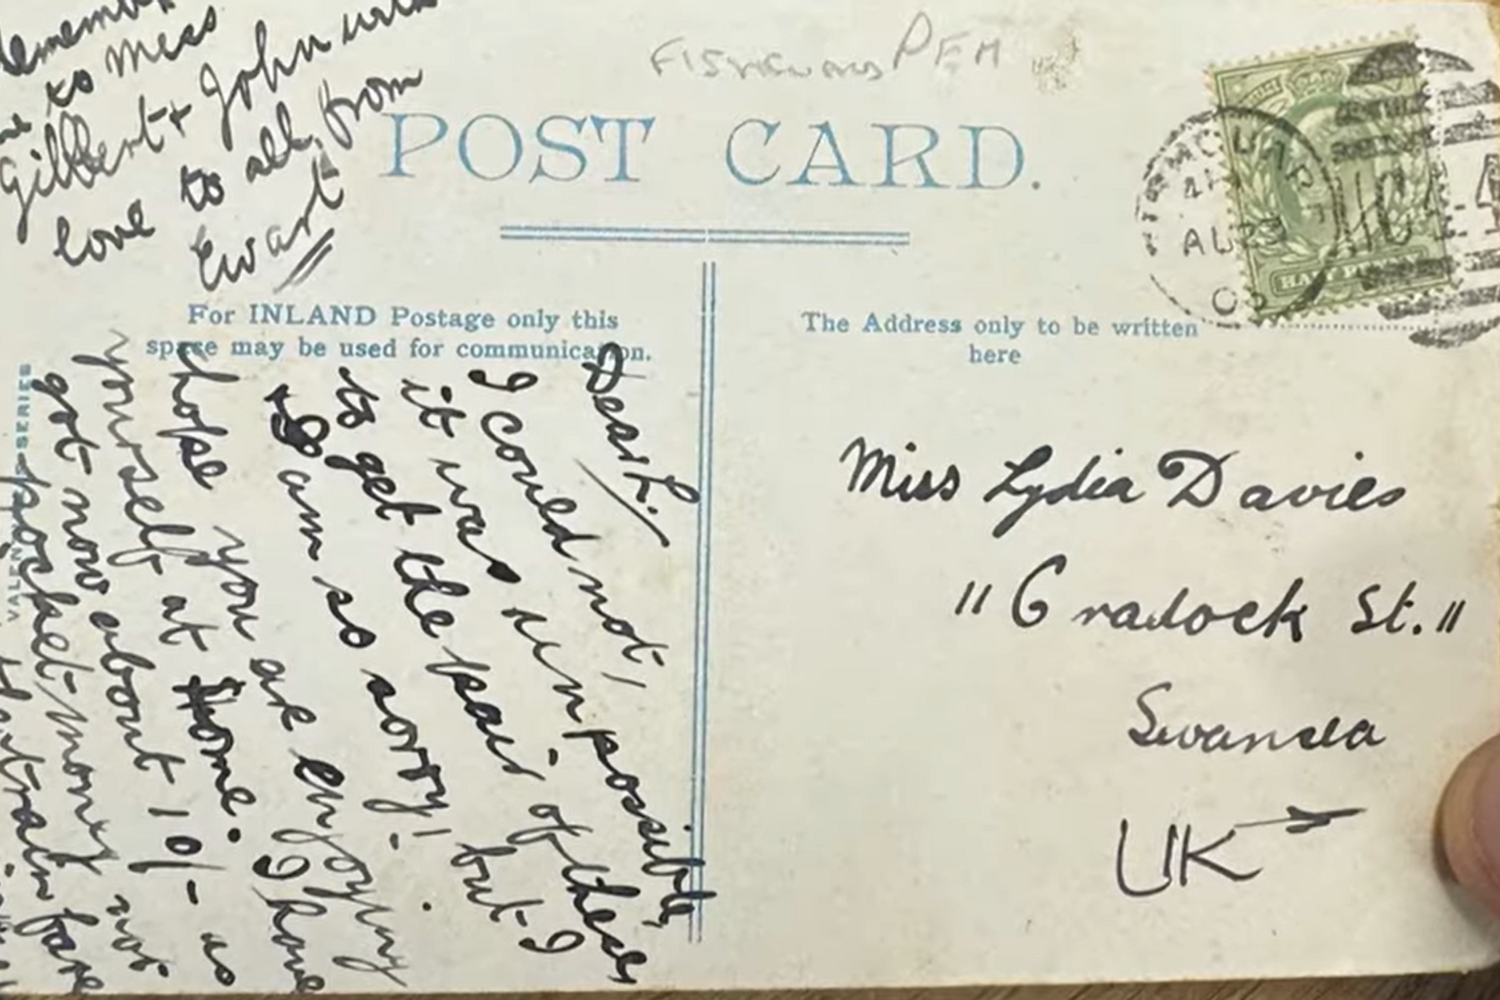 FISHGUARD PEM
POST CARD.
For INLAND Postage only this
space may be used for communication.
The Address only to be written
here
AU 23
03
HALFPENNY
Miss Lydia Davies
"Cradock St."
Swansea
UK
Dear L.,
I could not,
it was unpossible,
to get the pair of these
& I am so sorry! but I
hope you are enjoying
yourself at Home. I have
got now about 10/- as
pocket-money not
train fare
Remember
me to Miss
Gilbert & John with
love to all from
Ewart
VALENTINES SERIES